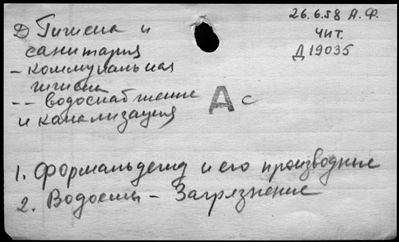 26.6.58 А.Ф.
Чит.
Д19035
Д Гигиена и
санитария
- коммунальная
гигиена
-- водоснабжение
и канализация
А с
1. Формальдегид и его производные
2. Водоемы - Загрязнение